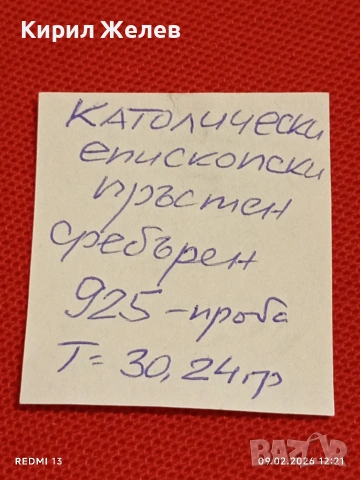 Кирил Желев
Католически
епископски
пръстен
сребърен
925 - проба
Т = 30,24 гр
REDMI 13
09.02.2026 12:21
BAZAR